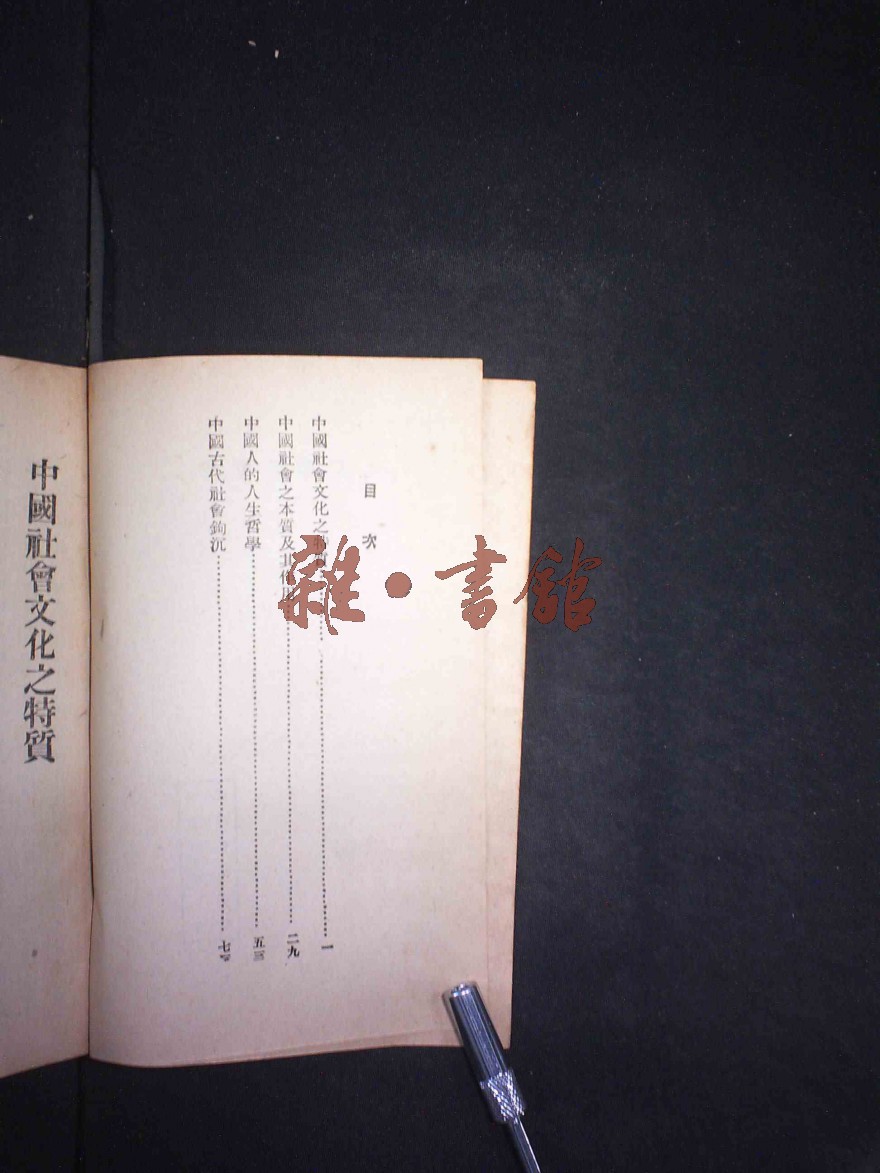 目次
中國社會文化之特質一
中國社會之本質及其作用二九
中國人的人生哲學五三
中國古代社會鉤沉七
中國社會文化之特質
雜·書館